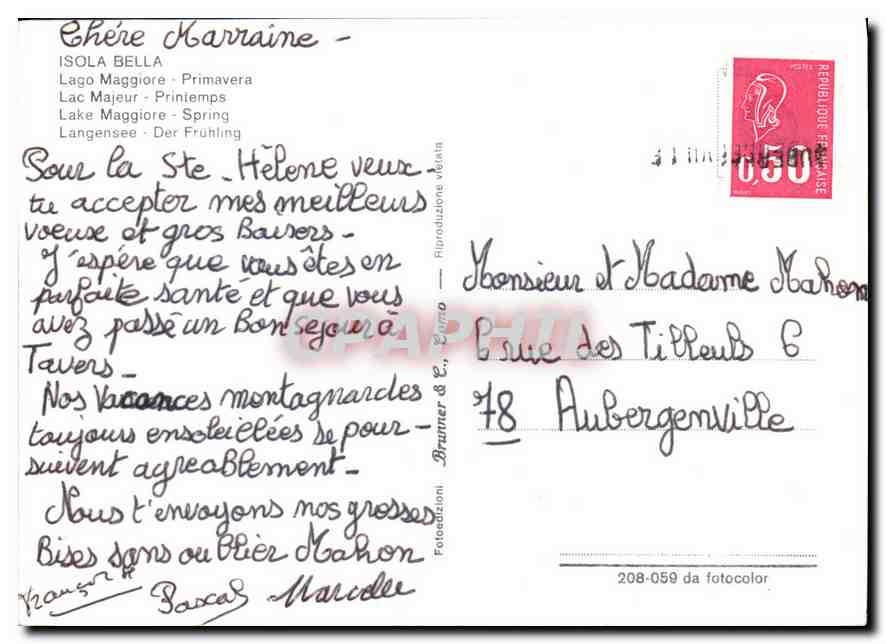 Chére Marraine -
ISOLA BELLA
Lago Maggiore - Primavera
Lac Majeur - Printemps
Lake Maggiore - Spring
Langensee - Der Frühling
Pour la Ste - Hélene veux-
tu accepter mes meilleurs
voeux et gros Baisers -
J'espère que vous êtes en
parfaite santé et que vous
avez passé un Bon sejour à
Tavers -
Nos Vacances montagnardes
toujours ensoleillées se pour -
suivent agreablement -
Nous t'envoyons nos grosses
Bises sans oublier Mahon
Pascal Marcelle
Fotoedizioni Brunner & C., Como — Riproduzione vietata
REPUBLIQUE FRANÇAISE
POSTES
0,50
Monsieur et Madame Mahon
6 rue des Tilleuls 6
78 Aubergenville
208-059 da fotocolor
CPAPHIL